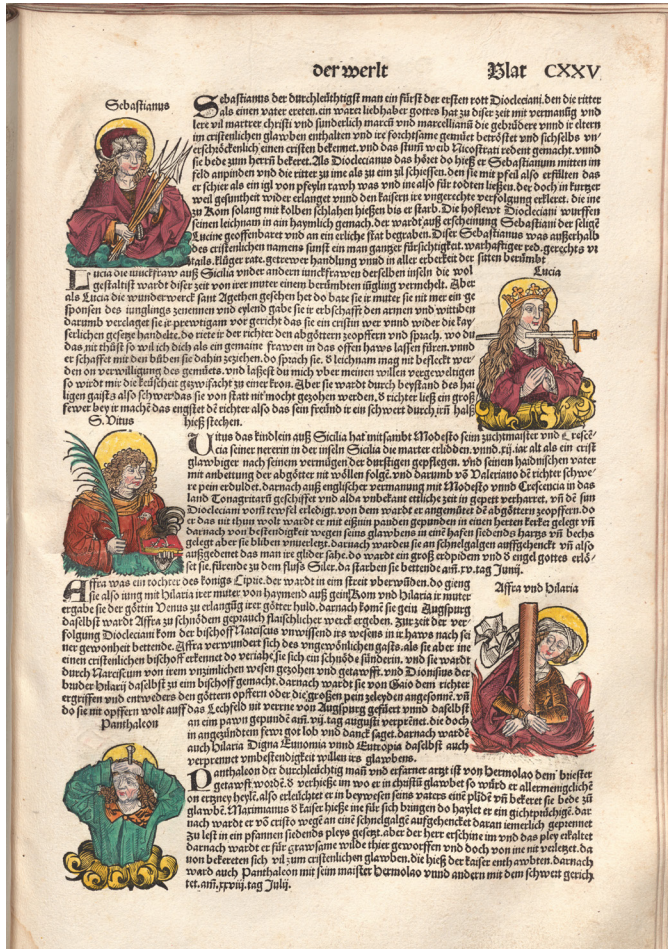 der werlt
Blat CXXV
Sebastianus
Sebastianus der durchleüchtigst man ein fürst der ersten rott Diocleciani. den die ritter
als einen vater ereten. ein warer liebhaber gottes hat zu diser zeit mit vermanũg vnd
lere vil martrer christi vnd sunderlich marcũ vnd marcellianũ die gebrüdere vnnd ir eltern
im cristenlichen glawben enthalten vnd ire forchtsame gemüet bertröstet vnd sichselbs vn/
erschröckenlich einen cristen bekennet. vnd das stum̃ weib Nicostrati redent gemacht. vnnd
sie bede zum herrñ bekeret. Als Dioclecianus das höret do hieß er Sebastianum mitten im
feld anpinden vnd die ritter zu ime als zu eim zil schiessen. den sie mit pfeil also erfülten das
er schier als ein igl von pfeyln rawh was vnd ine also für todten ließen. der doch in kurtzer
weil gesuntheit wider erlanget vnnd den kaisern ire vngerechte verfolgung erkleret. die ine
zu Rom solang mit kolben schlahen hießen bis er starb. Die hoflewt Diocleciani wurffen
seinen leichnam in ain haymlich gemach. der wardt auß erscheinung Sebastiani der seligẽ
Lucine geoffenbaret vnd an ein erliche stat begraben. Diser Sebastianus was außerhalb
des cristenlichen namens sunst ein man gantzer fürsichtigkeit. warhaftiger red. gerechts vr
tails. klůger rate. getrewer handlung vnnd in aller erberkeit der sitten berümbt
Lucia die iunckfraw auß Sicilia vnder andern iunckfrawen derselben inseln die wol
gestaltist wardt diser zeit von irer muter einem berümbten iügling vermehelt. Aber
als Lucia die wunderwerck sant Agethen gesehen het do bate sie ir muter sie nit mer ein ge
sponsen des iunglings zenennen vnd eylend gabe sie ir erbschafft den armen vnd wittiben
darumb verclaget sie ir prewtigam vor gericht das sie ein cristin wer vnnd wider die kay/
serlichen gesetze handelte. do riete ir der richter den abgöttern zeopffern vnd sprach. wo du
das nit thüst so wil ich dich als ein gemaine frawen in das offen haws lassen füren. vnnd
er schaffet mit den bůben sie dahin zeziehen. do sprach sie. ð leichnam mag nit befleckt wer/
den on verwilligung des gemüets. vnd laßest du mich vber meinen willen vergeweltigen
so wirdt mir die keüscheit gezwifacht zu einer kron. Aber sie wardt durch beystand des hai
ligen gaists also schwer das sie von statt nit mocht gezohen werden. ð richter ließ ein groß
fewer bey ir machẽ das engstet dẽ richter also das sein freünd ir ein schwert durch irñ halß
hieß stechen.
Lucia
S. Vitus
Vitus das kindlein auß Sicilia hat mitsambt Modesto seim zuchtmaister vnd Crescẽ/
cia seiner nererin in der inseln Sicilia die marter erlidden. vnnd. xij. iar alt als ein crist
glawbiger nach seinem vermügen der durstigen gepflegen. vnd seinem haidnischen vater
mit anbettung der abgötter nit wöllen folgẽ. vnd darumb võ Valeriano dẽ richter schwe/
re pein erduldet. darnach auß englischer vermanung mit Modesto vnnd Crescencia in das
land Tonagritarũ geschiffet vnd alda vnbekant ettliche zeit in gepett verharret. vñ dẽ sun
Diocleciani vom̃ tewfel erlediget. von dem wardt er angemütet dẽ abgöttern zeopffern. do
er das nit thun wolt wardt er mit eißnin panden gepunden in einen herten kerker gelegt vñ
darnach von bestendigkeit wegen seins glawbens in einẽ hafen siedends hartzs vñ bechs
gelegt aber sie bliben vnuerletzt. darnach warden sie an schnelgalgen auffgehenckt vñ also
außgedenet das man ire glider sahe. do wardt ein groß erdpidem vnd ð engel gottes erlö/
set sie. fürende zu dem fluß Siler. da starben sie bettende am̃. xv. tag Junij.
Affra was ein tochter des konigs Ciprie. der wardt in eim streit vberwũden. do gieng
sie also iung mit Hilaria irer muter von haymend auß gein Rom vnd Hilaria ir muter
ergabe sie der göttin Venus zu erlangũg irer götter huld. darnach komẽ sie gein Augspurg
daselbst wardt Affra zu schnödem geprauch flaischlicher werck ergeben. Zur zeit der ver/
folgung Diocleciani kom der bischoff Narcissus vnwissend irs wesens in ir haws nach sei
ner gewonheit bettende. Affra verwundert sich des vngewönlichen gasts. als sie aber ine
einen cristenlichen bischoff erkennet do veriahe sie sich ein schnöde sünderin. vnd sie wardt
durch Narcissum von irem vnzimlichen wesen gezohen vnd getawfft. vnd Dionisius der
bruder Hilarij daselbst zu eim bischoff gemacht. darnach wardt sie von Gaio dem richter
ergriffen vnd entweders den göttern opffern oder die großen pein zeleyden angesonnẽ. vñ
do sie nit opffern wolt auff das Lechfeld nit verne von Augspurg gefüert vnnd daselbst
an eim pawn gepundẽ am̃. vij. tag augusti verprẽnet. die doch
in angezündtem fewr got lob vnd danck saget. darnach wardẽ
auch Hilaria Digna Eunomia vnnd Eutropia daselbst auch
verprennet vmbestendigkeit willen irs glawbens.
Affra vnd Hilaria
Panthaleon
Panthaleon der durchleüchtig mañ vnd erfarner artzt ist von Hermolao dem briester
getawft wordẽ. ð verhieße im wo er in christũ glawbet so würd er allermenigclichẽ
on ertzney heylẽ. also erleüchtet er in beywesen seins vaters eine plĩdẽ vñ bekeret sie bede zũ
glawbẽ. Maximianus ð kaiser hieße ine für sich bringen do haylet er ein gichtprüchigẽ. dar
nach wardt er võ cristo wegẽ an eine schnelgalgẽ aufgehencket daran iemerlich geprennet
Zu lest in ein pfannen siedends pleys gesetzt. aber der herr erschine im vnd das pley erkaltet
darnach wardt er für grawsame wilde thier geworffen vnd doch von ine nit verletzet. da
uon bekereten sich vil zum cristenlichen glawben. die hieß der kaiser enthawbten. darnach
ward auch Panthaleon mit seim maister Hermolao vnnd andern mit dem schwert gerich
tet. am̃. xxviij. tag Julij.